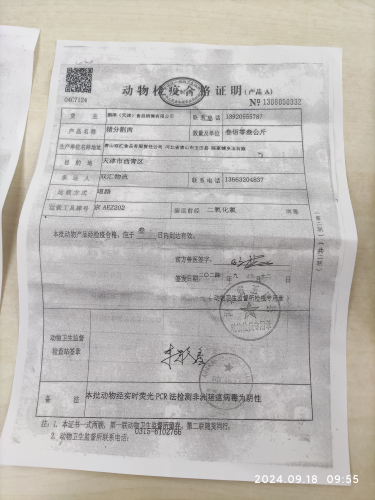 动物检疫合格证明(产品A)
04C7124
№ 1306050332
货主 联系电话 13920555787
产品名称 猪分割肉 数量及单位 叁佰零叁公斤
生产单位名称地址
目的地 天津市西青区
承运人 双汇物流 联系电话 13663204837
运载方式 道路
运载工具牌号 京AEZ202 装运前经 二氧化氯 消毒
本批动物产品经检疫合格,应于 叁 日内到达有效。
官方兽医签字:
签发日期:二〇二四 九
动物卫生监督所检疫专用章
动物卫生监督
检查站签章
备注 本批动物经实时荧光PCR法检测非洲猪瘟病毒为阴性
注:1. 本证书一式两联,第一联动物卫生监督所留存,第二联随货同行。
2. 动物卫生监督所联系电话: 0315-6102766
2024.09.18 09:55